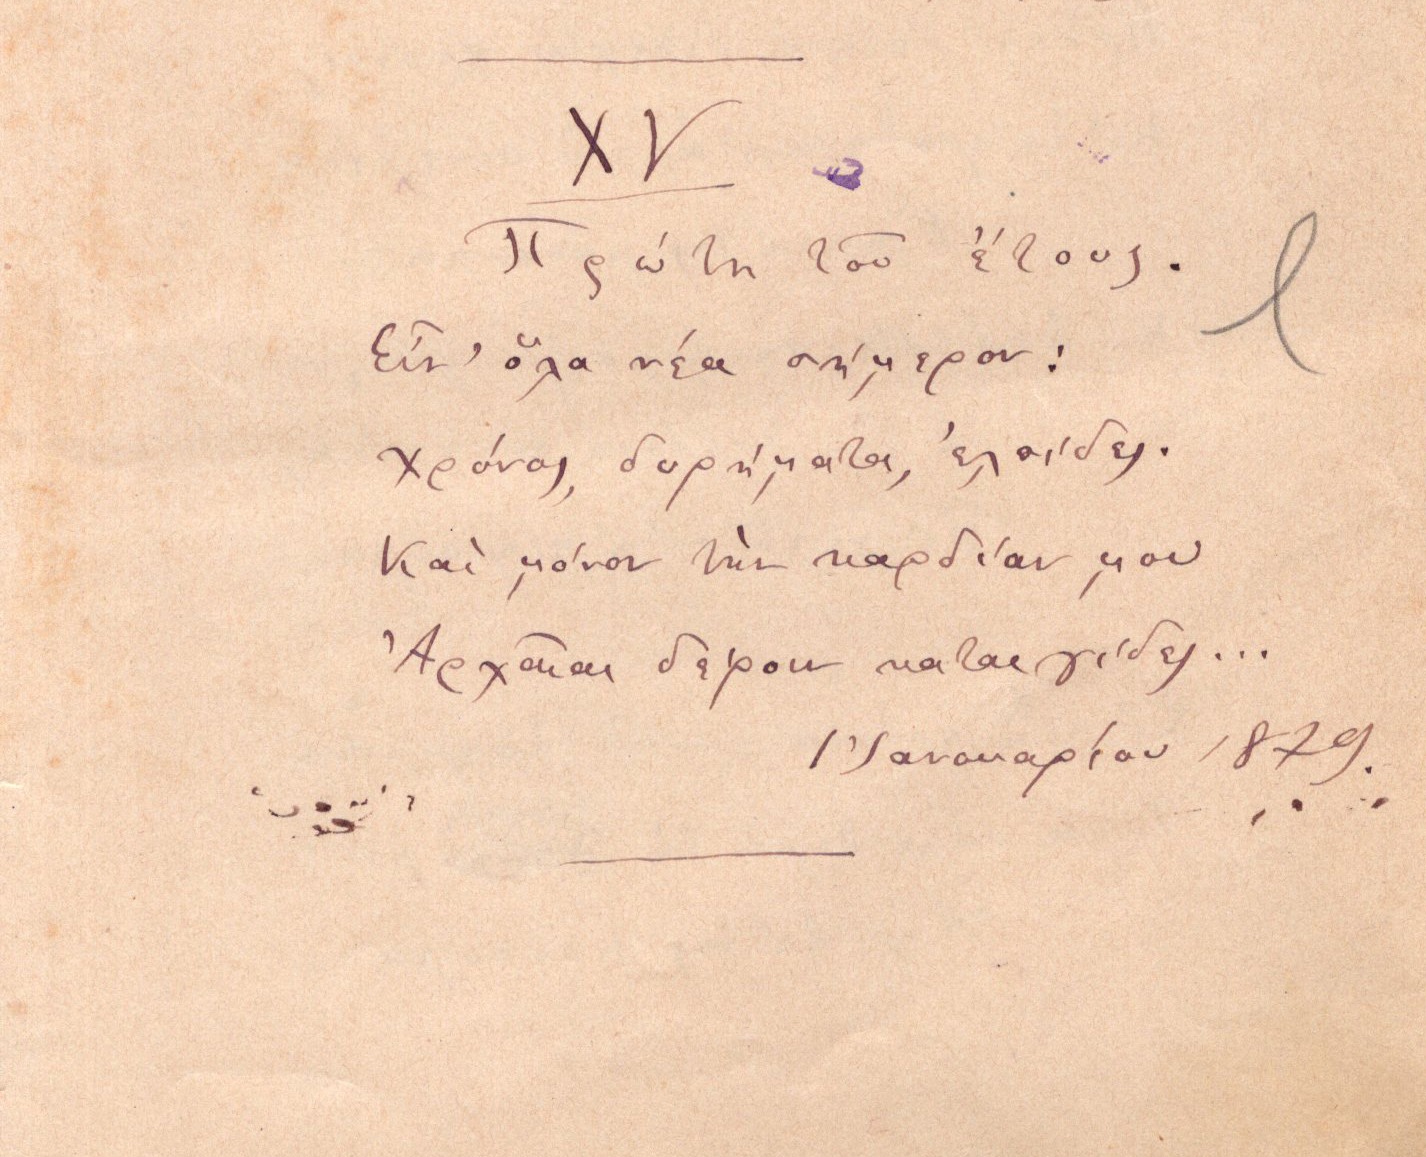 XV
Πρώτη τοῦ ἔτους.
Εἶν' ὅλα νέα σήμερον:
Χρόνος, δωρήματα, ἐλπίδες.
Καὶ μόνον τὴν καρδίαν μου
Ἀρχαῖαι δέρουν καταιγίδες...
1 Ἰανουαρίου 1879.